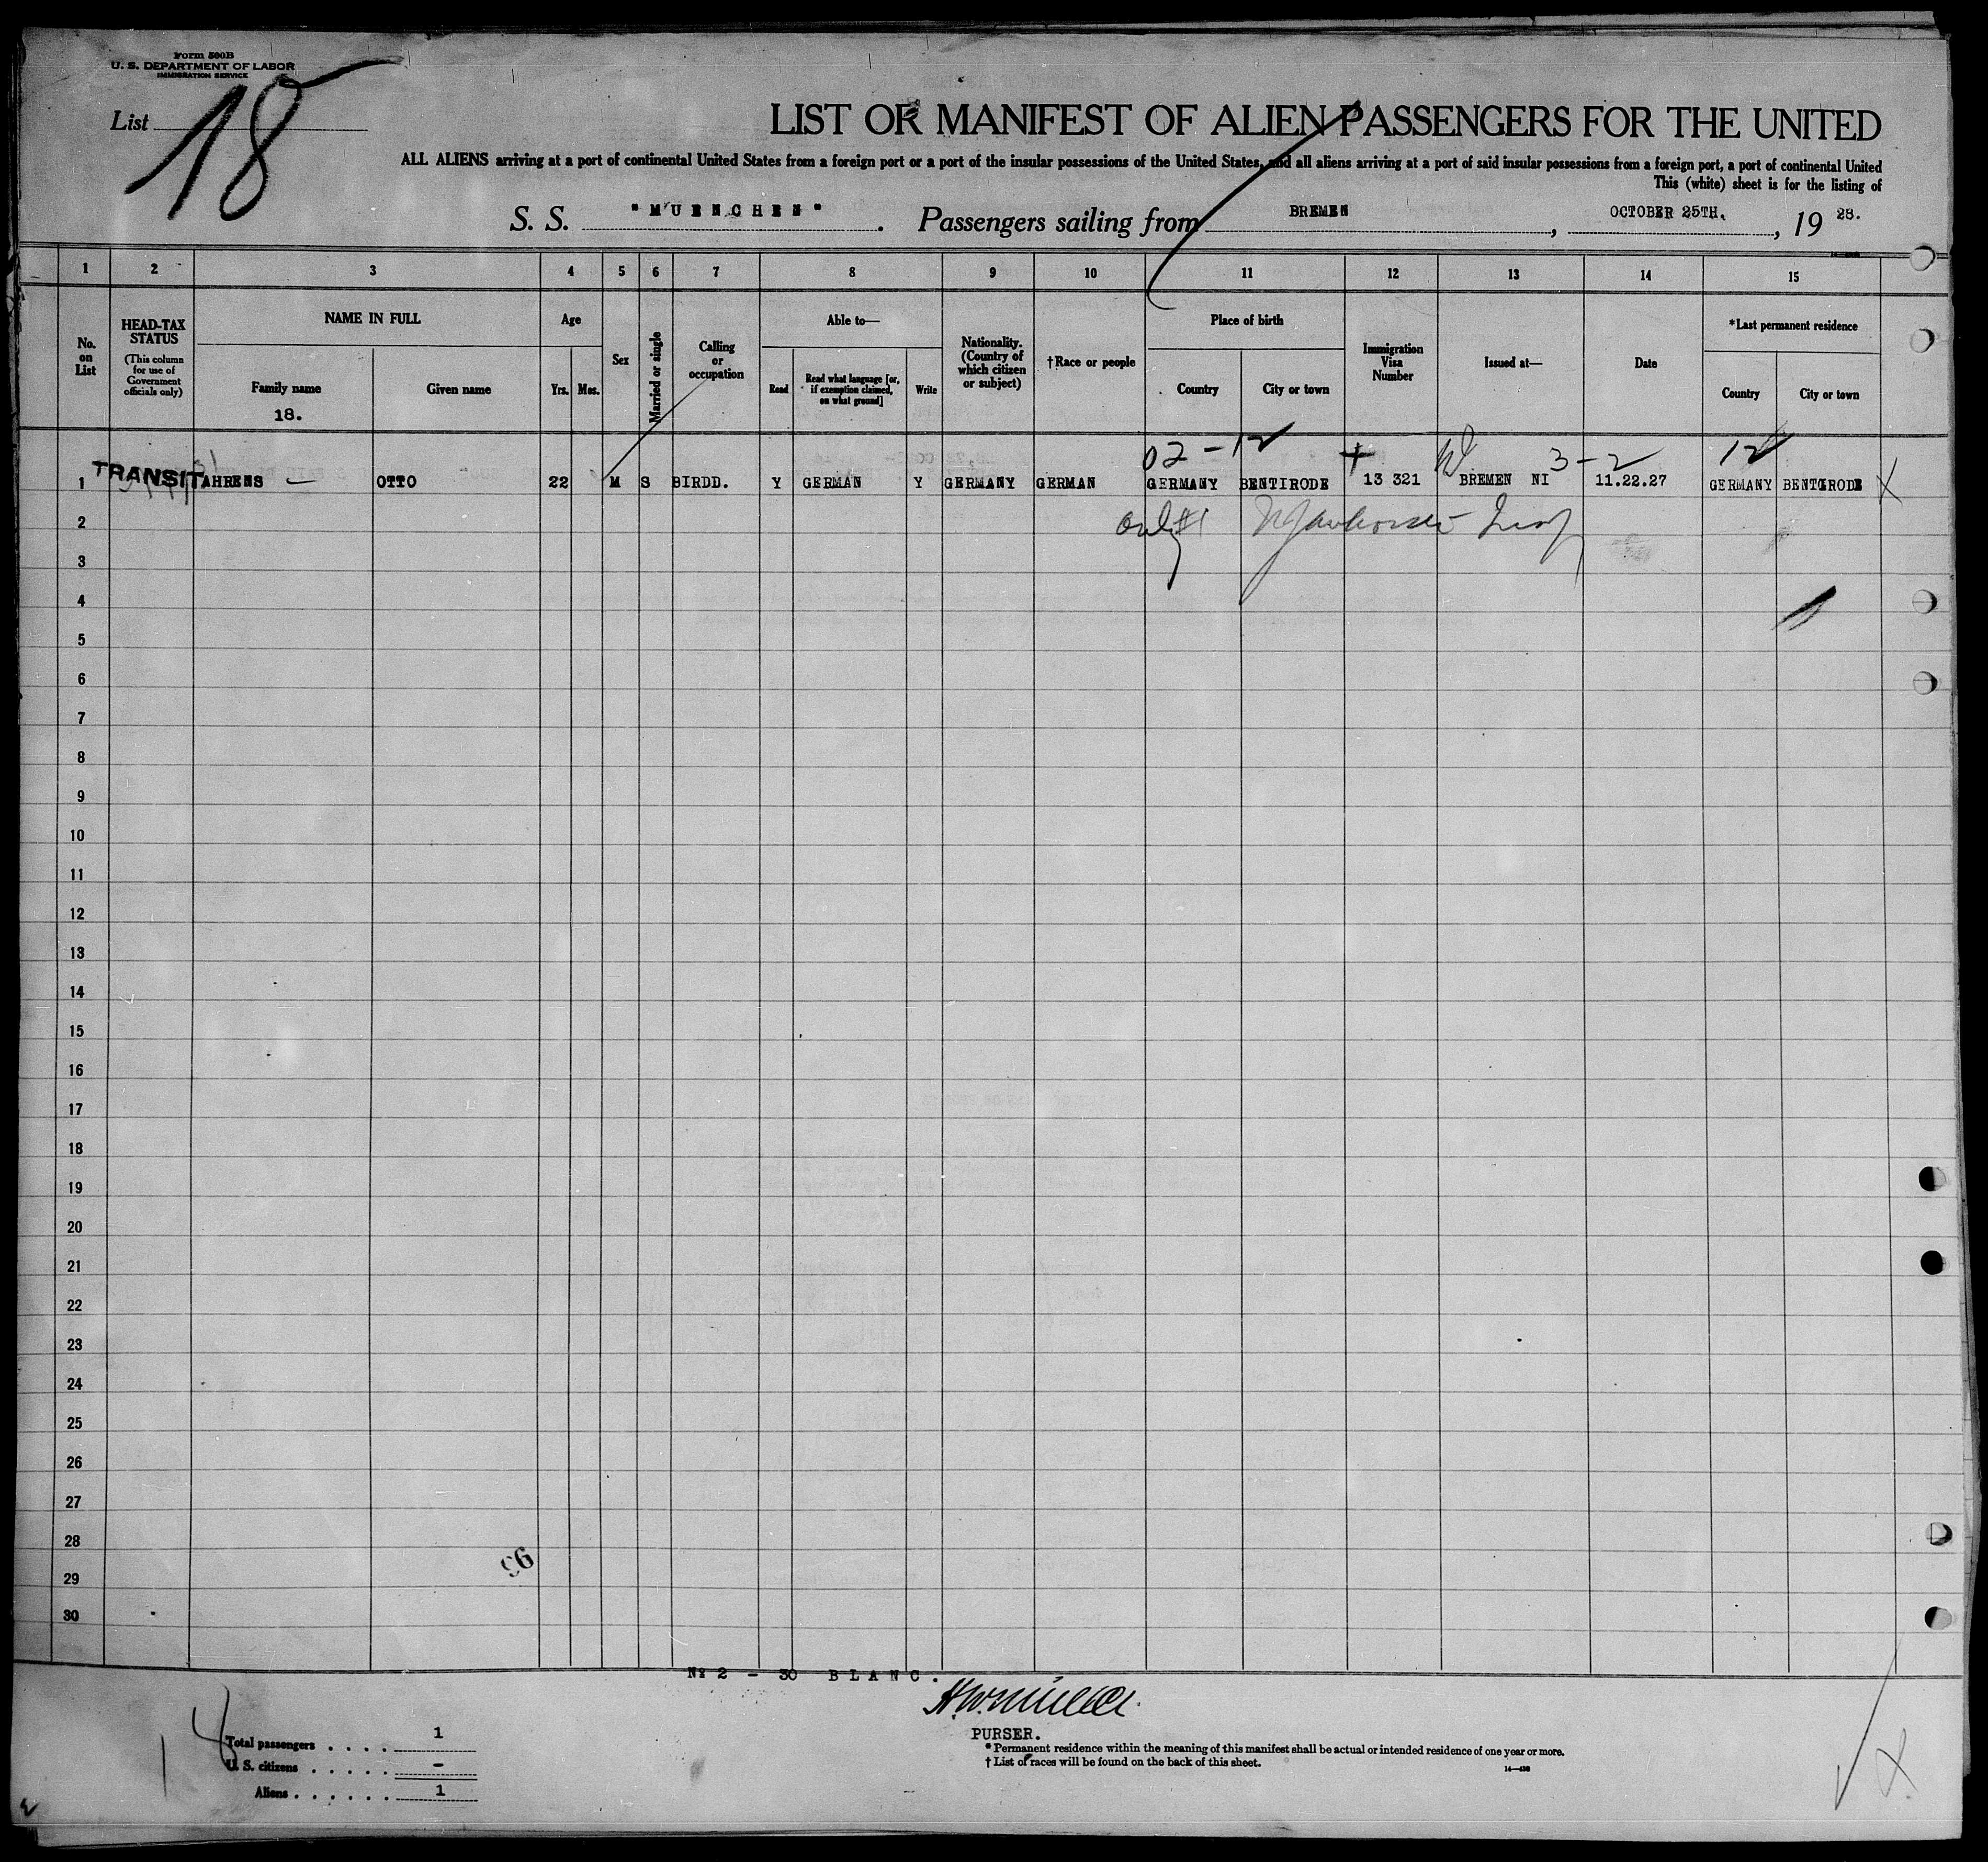 Form 500B
U. S. DEPARTMENT OF LABOR
IMMIGRATION SERVICE
List 18
LIST OR MANIFEST OF ALIEN PASSENGERS FOR THE UNITED
ALL ALIENS arriving at a port of continental United States from a foreign port or a port of the insular possessions of the United States, and all aliens arriving at a port of said insular possessions from a foreign port, a port of continental United
This (white) sheet is for the listing of
S. S. "MUENCHEN". Passengers sailing from BREMEN, OCTOBER 25TH., 19 28.
1 2 3 4 5 6 7 8 9 10 11 12 13 14 15
No. on List
HEAD-TAX STATUS (This column for use of Government officials only)
NAME IN FULL
Family name
Given name
18.
Age
Yrs. Mos.
Sex
Married or single
Calling or occupation
Able to—
Read
Read what language [or, if exemption claimed, on what ground]
Write
Nationality. (Country of which citizen or subject)
†Race or people
Place of birth
Country
City or town
Immigration Visa Number
Issued at—
Date
*Last permanent residence
Country
City or town
02-12 3-2 12
1 TRANSIT AHRENS OTTO 22 M S BIRDD. Y GERMAN Y GERMANY GERMAN GERMANY BENTIRODE 13 321 BREMEN NI 11.22.27 GERMANY BENTIRODE X
2 only #1
3
4
5
6
7
8
9
10
11
12
13
14
15
16
17
18
19
20
21
22
23
24
25
26
27
28
29
30
96
Nº 2 - 30 BLANC.
PURSER.
* Permanent residence within the meaning of this manifest shall be actual or intended residence of one year or more.
† List of races will be found on the back of this sheet.
Total passengers . . . . 1
U. S. citizens . . . . . -
Aliens . . . . . . 1